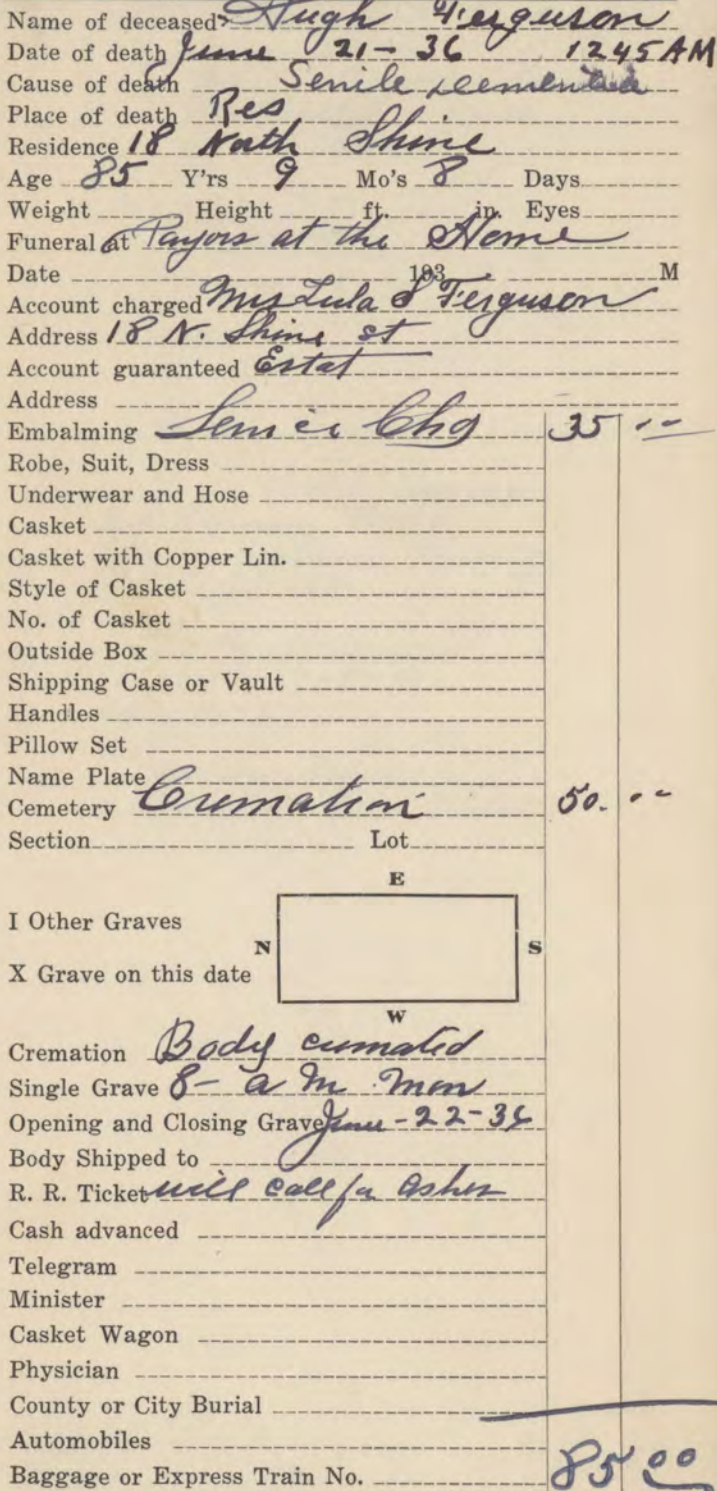 Name of deceased Hugh Ferguson
Date of death June 21-36 1245 AM
Cause of death Senile dementia
Place of death Res
Residence 18 North Shine
Age 85 Y'rs 9 Mo's 8 Days
Weight Height ft. in. Eyes
Funeral at at the Home
Date 193 M
Account charged Mrs Lula S Ferguson
Address 18 N. Shine st
Account guaranteed Estat
Address
Embalming Service Chg 35 00
Robe, Suit, Dress
Underwear and Hose
Casket
Casket with Copper Lin.
Style of Casket
No. of Casket
Outside Box
Shipping Case or Vault
Handles
Pillow Set
Name Plate
Cemetery Cremation 50. 00
Section Lot
E
I Other Graves
N S
X Grave on this date
W
Cremation Body cremated
Single Grave 8- a m Mon
Opening and Closing Grave June-22-36
Body Shipped to
R. R. Ticket will call for ashes
Cash advanced
Telegram
Minister
Casket Wagon
Physician
County or City Burial
Automobiles
Baggage or Express Train No. 85 00